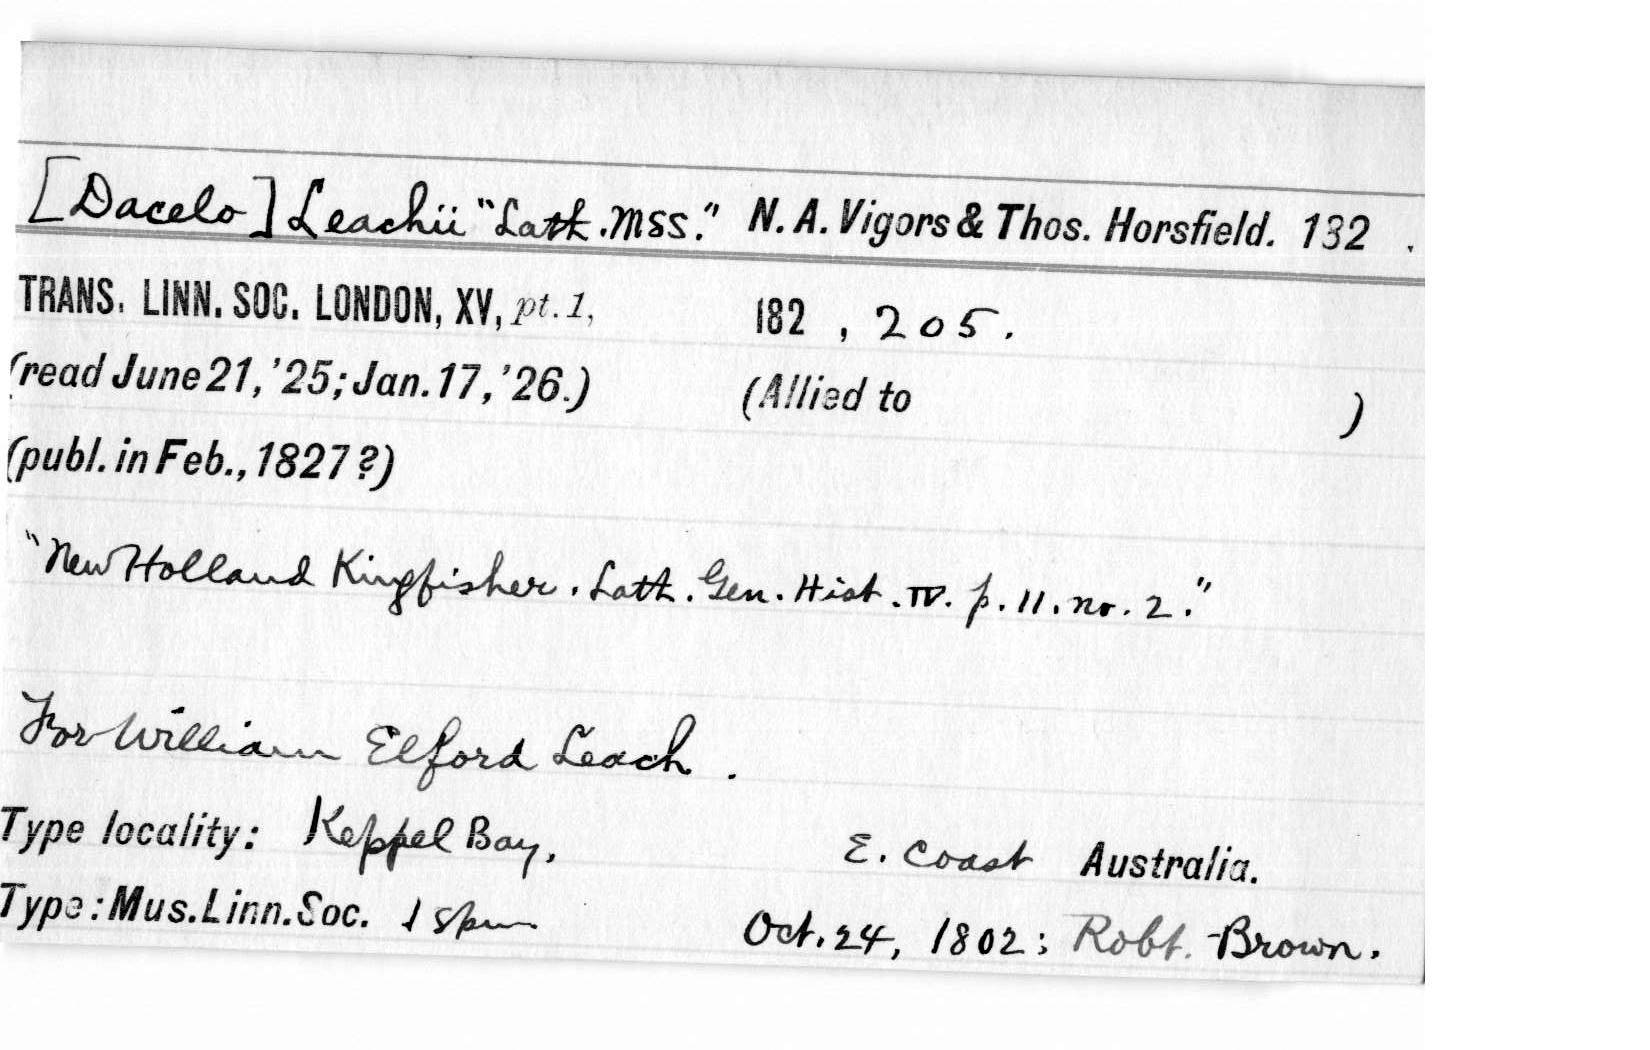 [Dacelo] Leachii "Lath. MSS." N. A. Vigors & Thos. Horsfield. 132 .
TRANS. LINN. SOC. LONDON, XV, pt. 1, 182 , 205.
(read June 21, '25; Jan. 17, '26.) (Allied to )
(publ. in Feb., 1827 ?)
"New Holland Kingfisher. Lath. Gen. Hist. IV. p. 11. no. 2."
For William Elford Leach .
Type locality: Keppel Bay, E. Coast Australia.
Type: Mus. Linn. Soc. 1 spm Oct. 24, 1802; Robt. Brown.